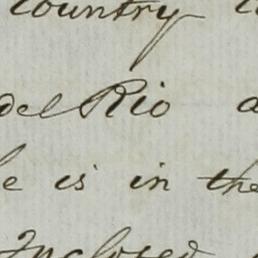 country
del Rio a
e is in the
Inclosed